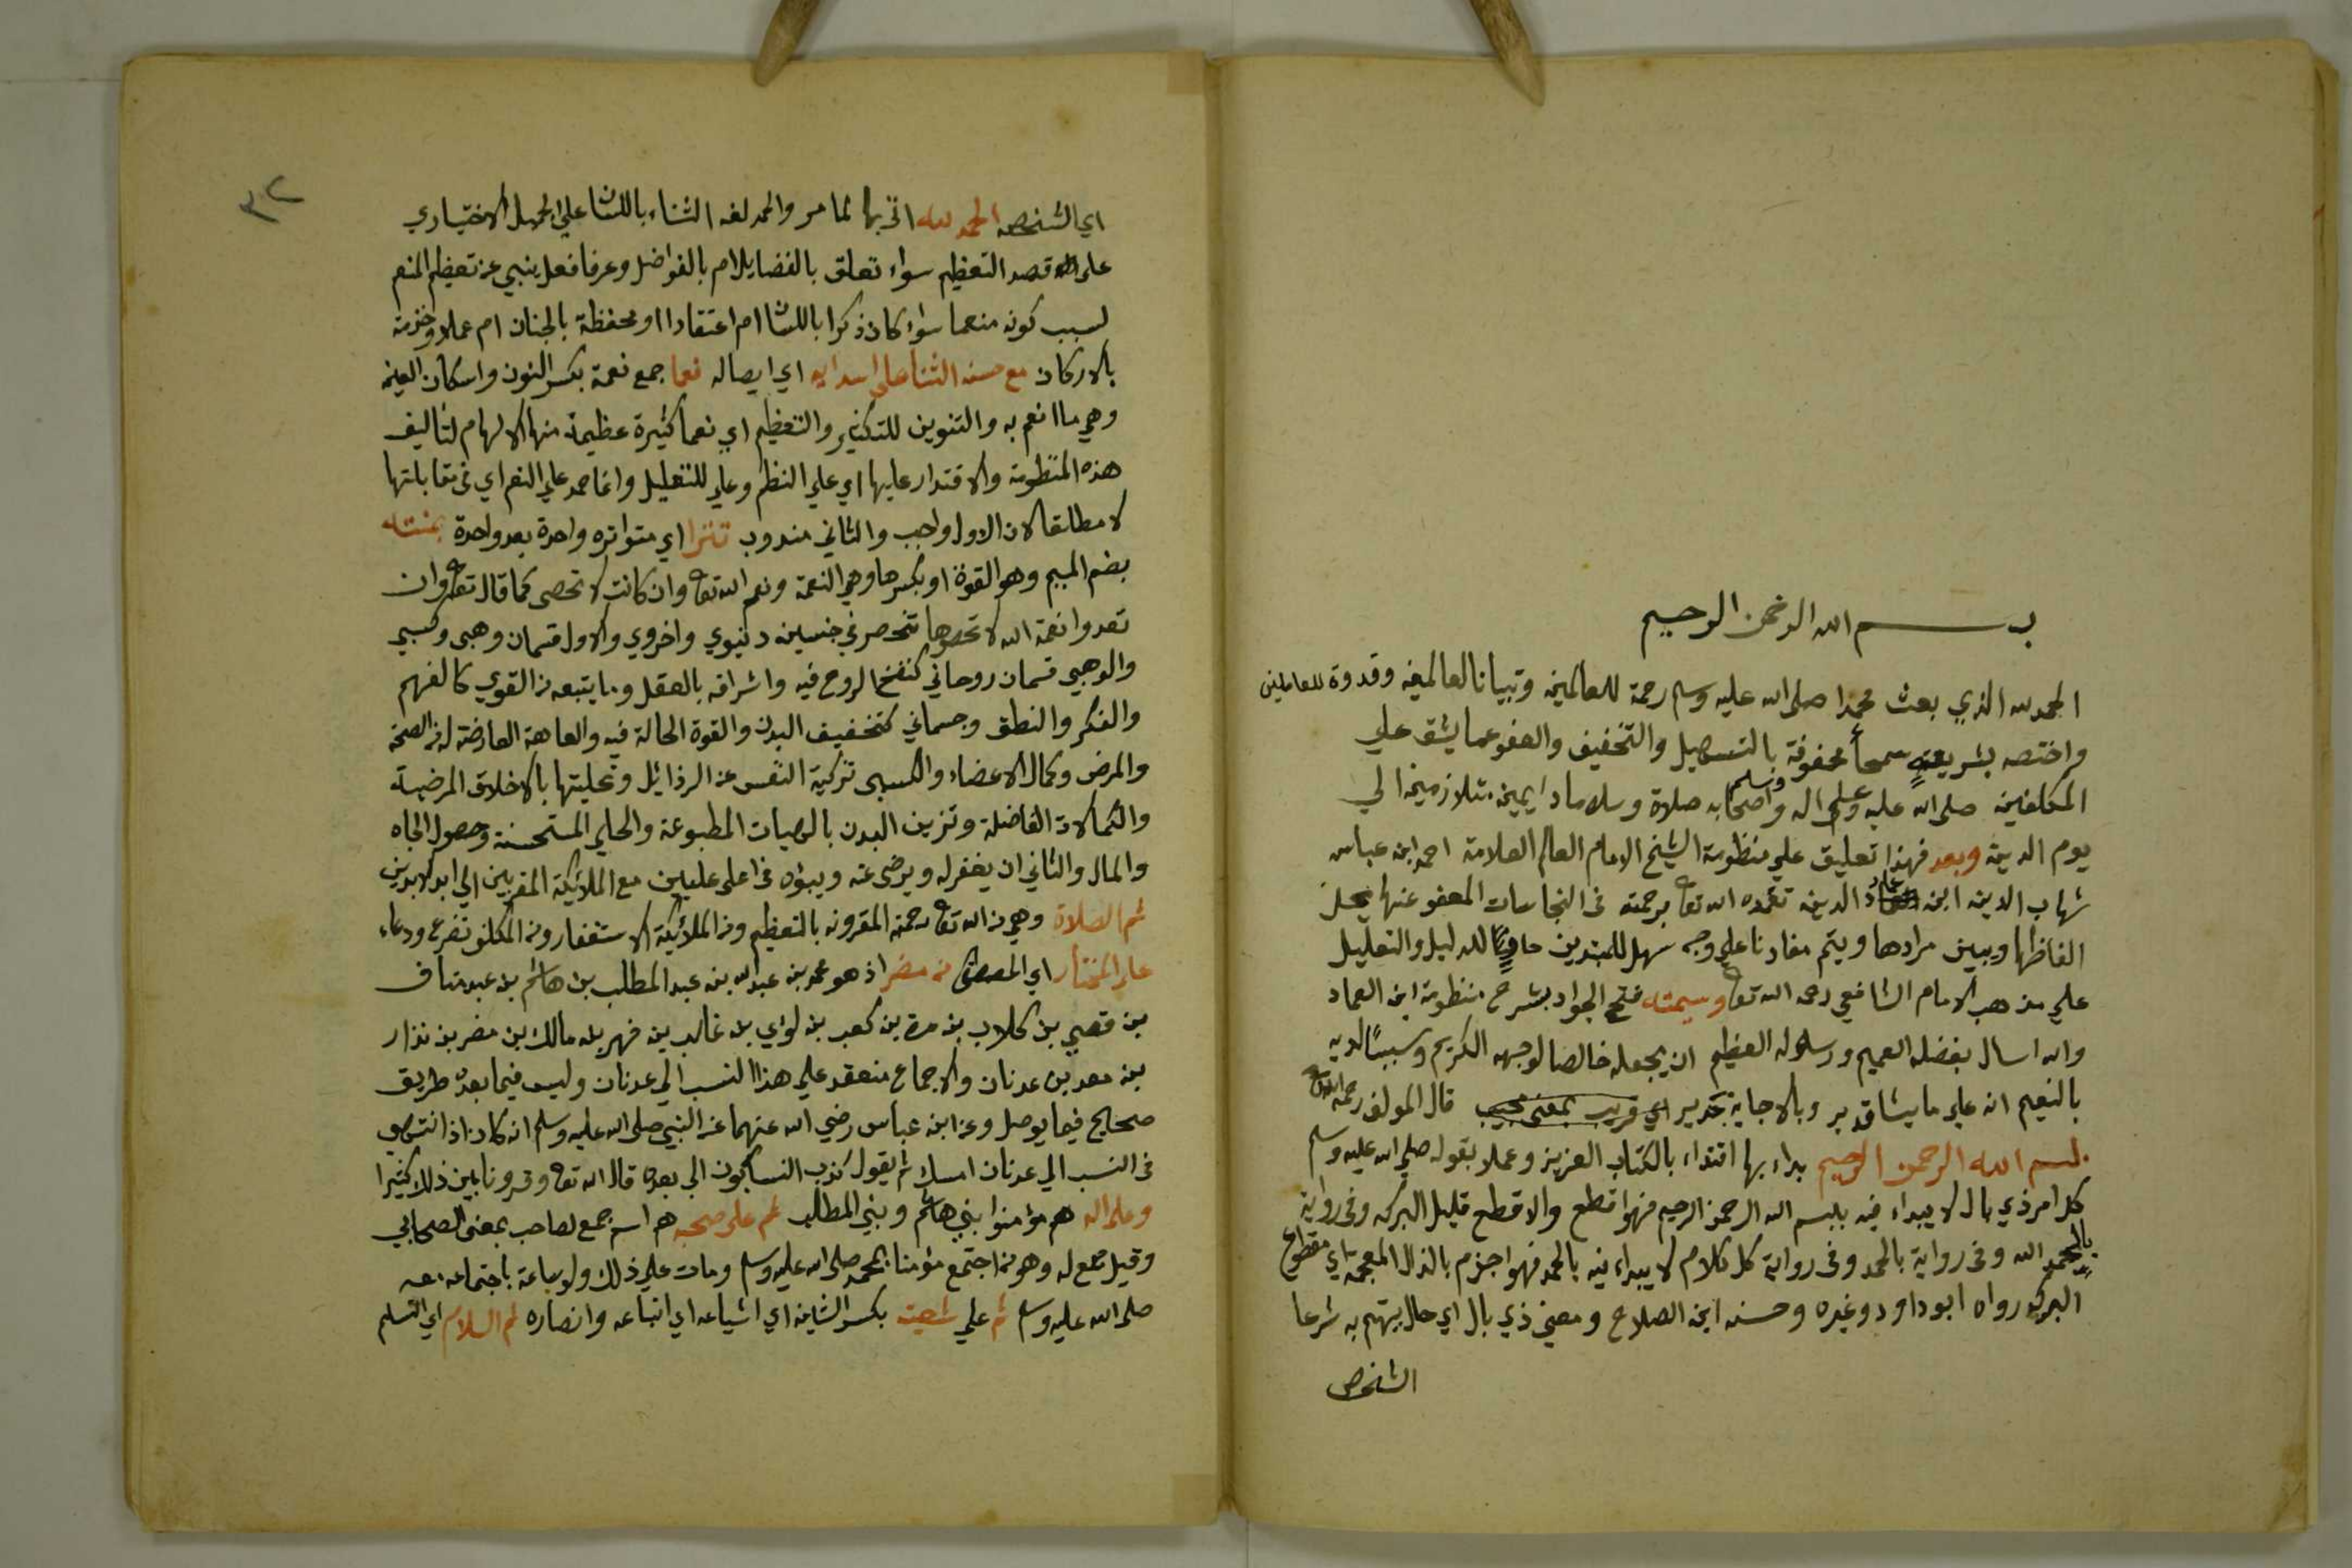 بسم الله الرحمن الرحيم
الحمد لله الذي بعث محمدا صلى الله عليه وسلم رحمة للعالمين وتبيانا لعالمين وقدوة للعاملين
واختصه بشريعةٍ سمحاً محفوفة بالتسهيل والتخفيف والعفو عما يشق علي
المكلفين صلى الله عليه وسلم وعلى اله واصحابه صلاة وسلاما دايمين متلازمين الي
يوم الدين وبعد فهذا تعليق علي منظومة الشيخ الامام العالم العلامة احمد ابن عباس
شهاب الدين ابن عماد الدين تغمده الله تعا برحمته في النجاسات المعفو عنها يحل
الفاظها ويبين مرادها ويتم مفادنا علي وجه سهل للمبتدين حاويًا للدليل والتعليل
علي مذهب الامام الشافعي رحمه الله تعا وسميته فتح الجواد بشرح منظومة ابن العماد
والله اسال بفضله العميم ورسوله العظيم ان يجعله خالصا لوجهه الكريم وسببًا لديه
بالنعيم انه علي ما يشا قدير وبالاجابة جدير اي قريب بمعنى مجيب قال المولف رحمه الله تعا
بسم الله الرحمن الرحيم بداء بها اقتداء بالكتاب العزيز وعملا بقوله صلي الله عليه وسلم
كل امر ذي بال لا يبداء فيه ببسم الله الرحمن الرحيم فهو اقطع والاقطع قليل البركه وفى رواية
بالحمد الله وفى رواية بالحمد وفى رواية كل كلام لا يبداء فيه بالحمد فهو اجزم بالذال المعجمة اي مقطوع
البركه رواه ابو داود وغيره وحسنه ابن الصلاح ومعنى ذي بال اي حال يهتم به شرعا
الشخص
٣٢
اي الشخص الحمد لله اتى بها لما مر والحمد لغه الثناء باللسان على الجميل الاختياري
على قصد التعظيم سواء تعلق بالفضايل ام بالفواضل وعرفا فعل ينبي عن تعظيم المنعم
لسبب كونه منعما سواء كان ذكرا باللسان ام اعتقادا او محفظة بالجنان ام عملا وخدمة
بالاركان مع حسن الثنا على اسدايه اي ايصاله نعما جمع نعمة بكسر النون واسكان العين
وهي ما انعم به والتنوين للتكثير والتعظيم اي نعما كثيرة عظيمة منها الالهام لتاليف
هذه المنظومة والاقتدار عليها اي علي النظم وعلي للتعليل وانما حمد علي النعم اي في مقابلتها
لا مطلقا لان الاول واجب والثاني مندوب تترا اي متواتره واحدة بعد واحدة بمنته
بضم الميم وهو القوة او بكسرها وهي النعمة ونعم الله تعا وان كانت لا تحصى كما قال تعا وان
تعدوا نعمة الله لا تحصوها تنحصر في جنسين دنيوي واخروي والاول قسمان وهبى وكسبي
والوهبي قسمان روحاني كنفخ الروح فيه واشراقه بالعقل وما يتبعه من القوي كالفهم
والفكر والنطق وجسماني كتخفيف البدن والقوة الحالة فيه والعاهة العارضة له من الصحة
والمرض وكمال الاعضاء والكسبى تزكية النفس عن الرذائل وتحليتها بالاخلاق المرضية
والكمالات الفاضلة وتزين البدن بالهيات المطبوعة والحلي المستحسنة وحصول الجاه
والمال والثاني ان يغفر له ويرضى عنه ويبؤاه في اعلى عليين مع الملائيكة المقربين الي ابد الابدين
ثم الصلاة وهي من الله تعا رحمته المقرونه بالتعظيم ومن الملائيكة الاستغفار ومن المكلفو تضرع ودعاء
علي المختار اي المصطفى من مضر اذ هو محمد بن عبد الله بن عبد المطلب بن هاشم بن عبد مناف
بن قصي بن كلاب بن مرة بن كعب بن لوي بن غالب بن فهر بن مالك بن مضر بن نزار
بن معد بن عدنان والاجماع منعقد علي هذا النسب الي عدنان وليس فيما بعده طريق
صحايح فيما يوصل وعن ابن عباس رضي الله عنهما عن النبي صلى الله عليه وسلم انه كان اذا انتهى
في النسب الي عدنان امسك ثم يقول كذب النسابون الى بعده قال الله تعا وقرونا بين ذلك كثيرا
وعلى اله هم مؤمنوا بني هاشم وبني المطلب ثم على صحبه هم اسم جمع لصاحب بمعنى الصحابي
وقيل جمع له وهو من اجتمع مؤمنا بمحمد صلى الله عليه وسلم ومات على ذلك ولو ساعة باجتماعه معه
صلى الله عليه وسلم ثم علي شيعته بكسر الشين اي اشياعه اي اتباعه وانصاره ثم السلام اي التسلم